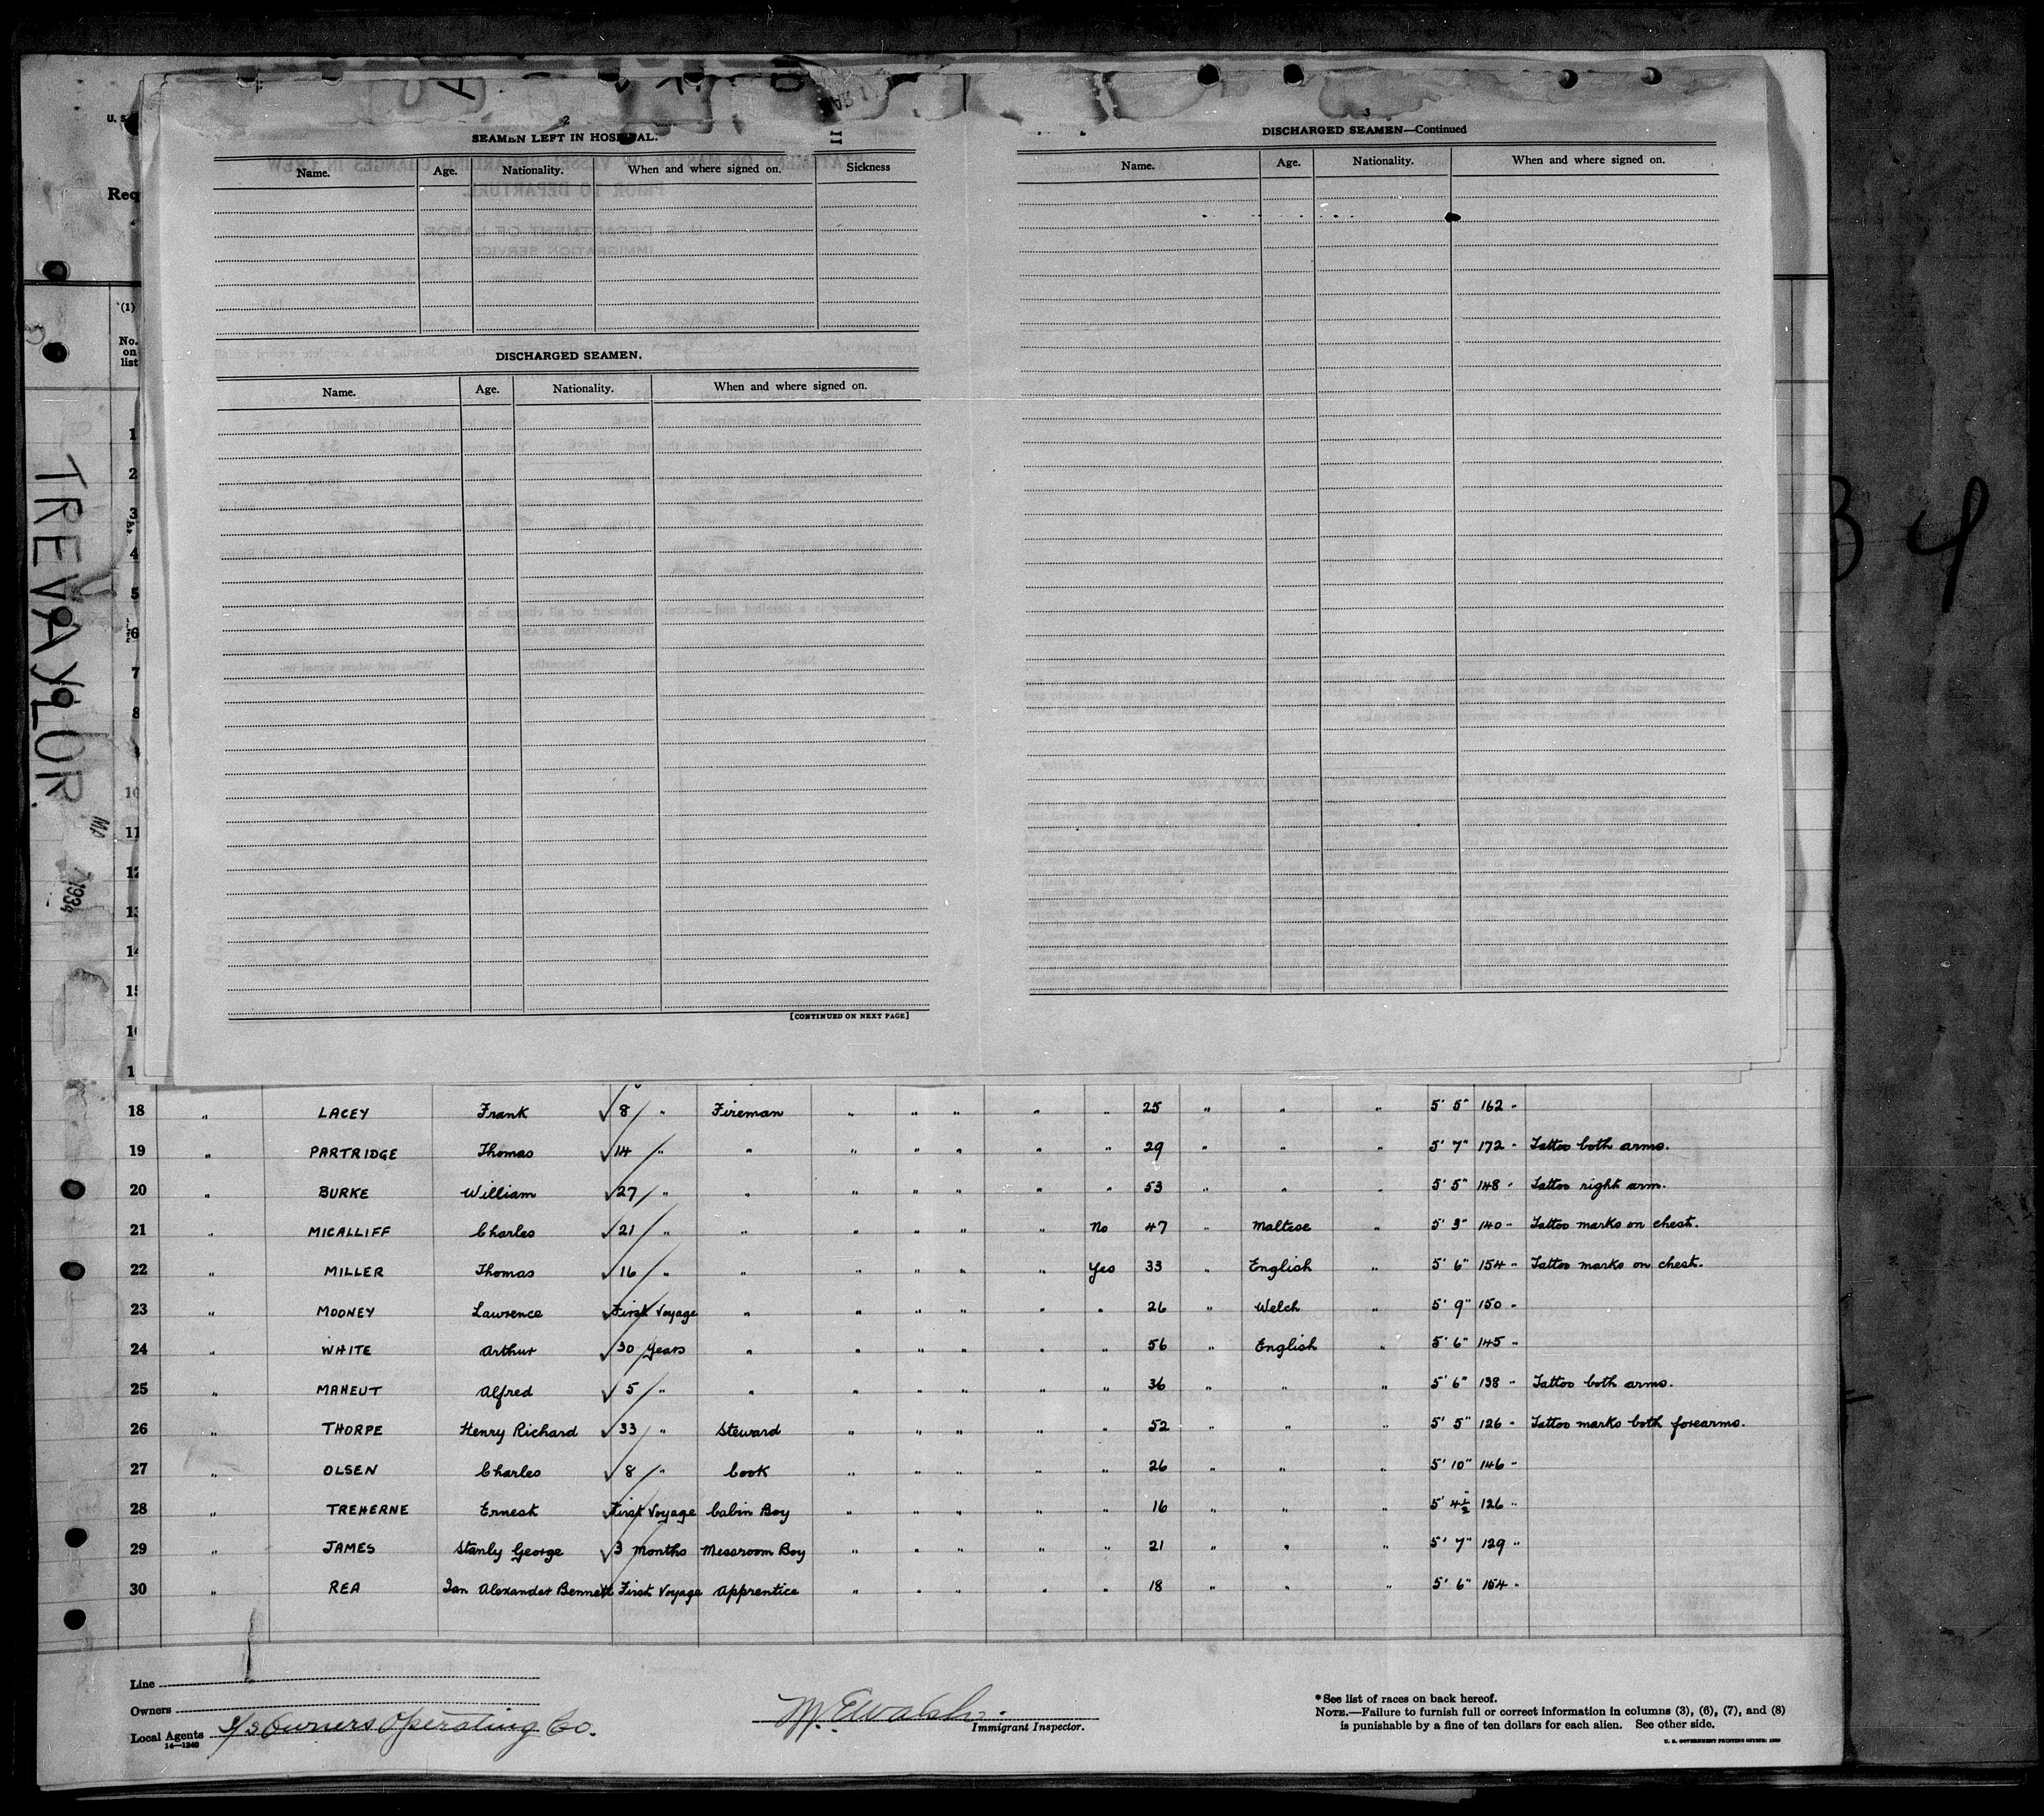 U. S.
Req
(1)
No.
on
list
TREVAYLOR.
1934
2
SEAMEN LEFT IN HOSPITAL.
Name. Age. Nationality. When and where signed on. Sickness
DISCHARGED SEAMEN.
Name. Age. Nationality. When and where signed on.
[CONTINUED ON NEXT PAGE]
3
DISCHARGED SEAMEN—Continued
Name. Age. Nationality. When and where signed on.
1
2
3
4
5
6
7
8
9
10
11
12
13
14
15
16
1
18 " LACEY Frank √ 8 " Fireman " " " " " 25 " " " 5' 5" 162 "
19 " PARTRIDGE Thomas √ 14 " " " " " " " 29 " " " 5' 7" 172 " Tattoo both arms.
20 " BURKE William √ 27 " " " " " " " 53 " " " 5' 5" 148 " Tattoo right arm.
21 " MICALLIFF Charles √ 21 " " " " " " No 47 " Maltese " 5' 3" 140 " Tattoo marks on chest.
22 " MILLER Thomas √ 16 " " " " " " Yes 33 " English " 5' 6" 154 " Tattoo marks on chest.
23 " MOONEY Lawrence √ First Voyage " " " " " " 26 " Welch " 5' 9" 150 "
24 " WHITE Arthur √ 30 Years " " " " " " 56 " English " 5' 6" 145 "
25 " MAHEUT Alfred √ 5 " " " " " " " 36 " " " 5' 6" 138 " Tattoo both arms.
26 " THORPE Henry Richard √ 33 " Steward " " " " " 52 " " " 5' 5" 126 " Tattoo marks both forearms.
27 " OLSEN Charles √ 8 " Cook " " " " " 26 " " " 5' 10" 146 "
28 " TREHERNE Ernest √ First Voyage Cabin Boy " " " " " 16 " " " 5' 4½" 126 "
29 " JAMES Stanly George √ 3 months Messroom Boy " " " " " 21 " " " 5' 7" 129 "
30 " REA Ian Alexander Bennett First Voyage Apprentice " " " " " 18 " " " 5' 6" 154 "
Line
Owners
Local Agents S/S Owners Operating Co.
14—1240
M. E. Walsh.
Immigrant Inspector.
* See list of races on back hereof.
NOTE.—Failure to furnish full or correct information in columns (3), (6), (7), and (8)
is punishable by a fine of ten dollars for each alien. See other side.
U. S. GOVERNMENT PRINTING OFFICE
34